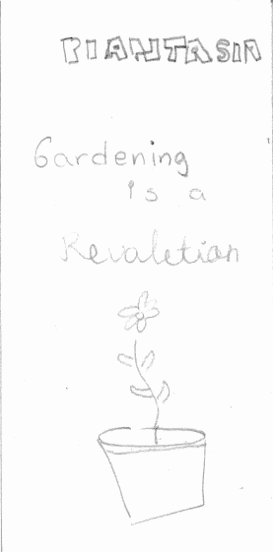 PIANTASIA
Gardening
is a
Revaletion